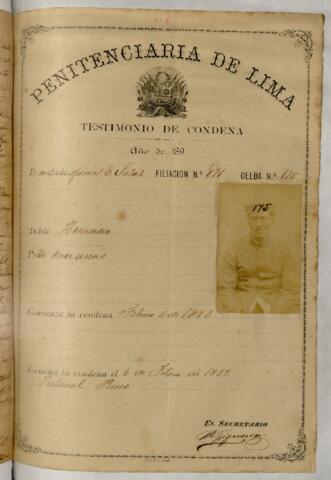 PENITENCIARIA DE LIMA
TESTIMONIO DE CONDENA
Año de 189
Rematado Salas FILIACION N.º 871 CELDA N.º 175
175
Delito Homicidio
Pena años
Comienza la condena Febro 6 de 1878
Termina la condena el 6 de Febro de 1889
Tribunal
EL SECRETARIO